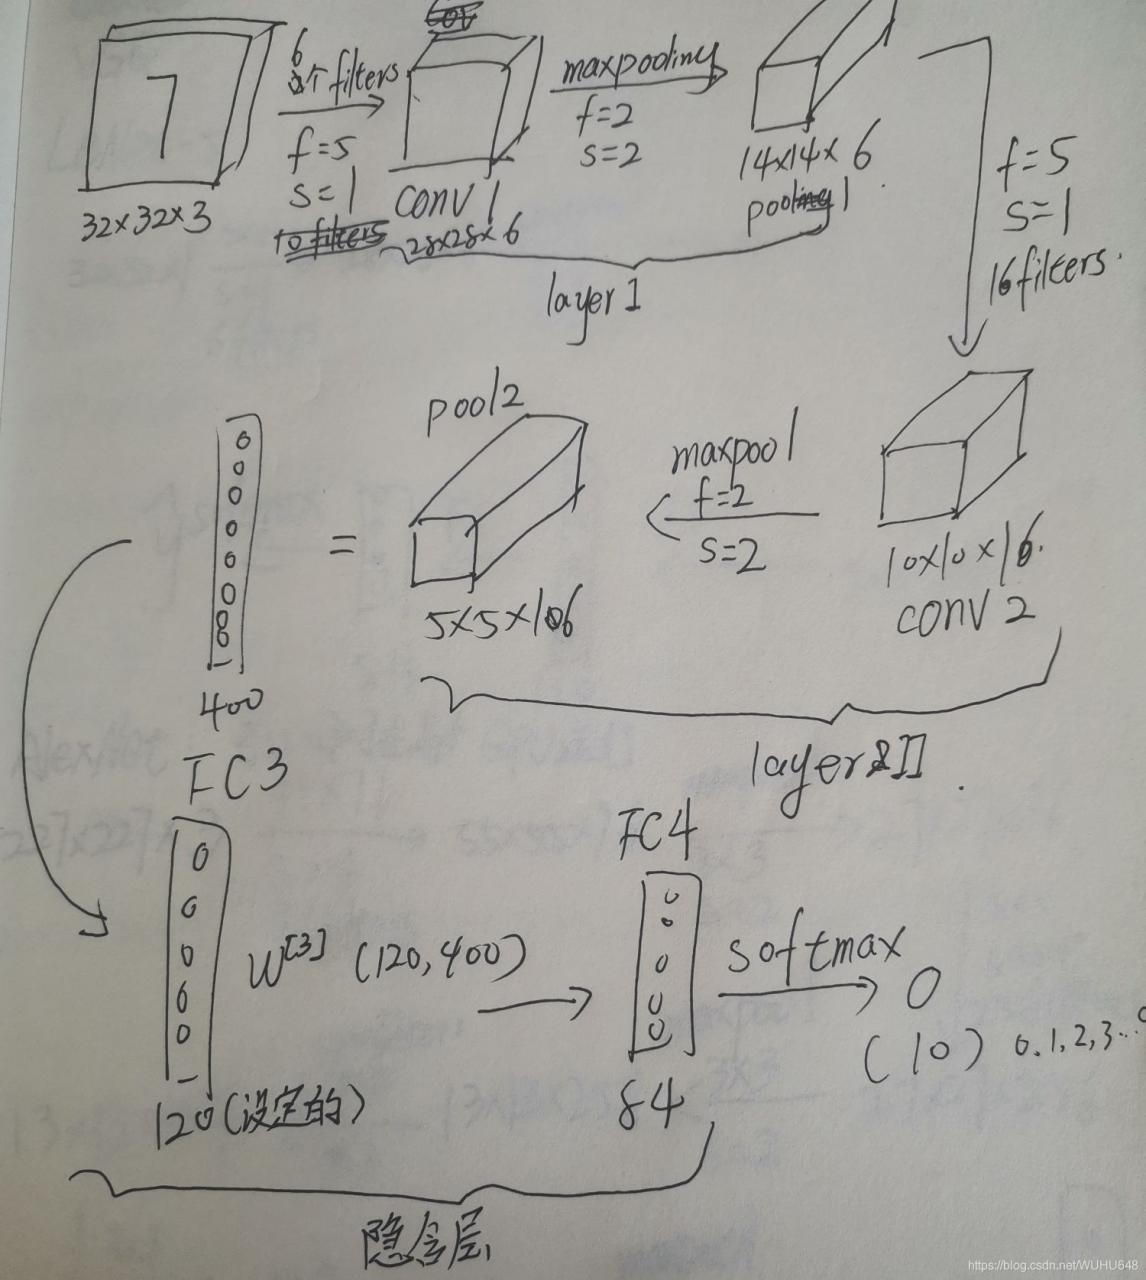 7
32×32×3
6
个filters
f=5
s=1
10 filters
CONV 1
28×28×6
maxpooling
f=2
s=2
14×14×6
pooling 1
layer 1
f=5
s=1
16 filters.
10×10×16.
CONV 2
maxpool
f=2
s=2
pool2
5×5×16
=
layer II
400
FC3
120(设定的)
W[3] (120,400)
FC4
84
softmax
(10) 0.1,2,3...
隐含层
https://blog.csdn.net/WUHU648